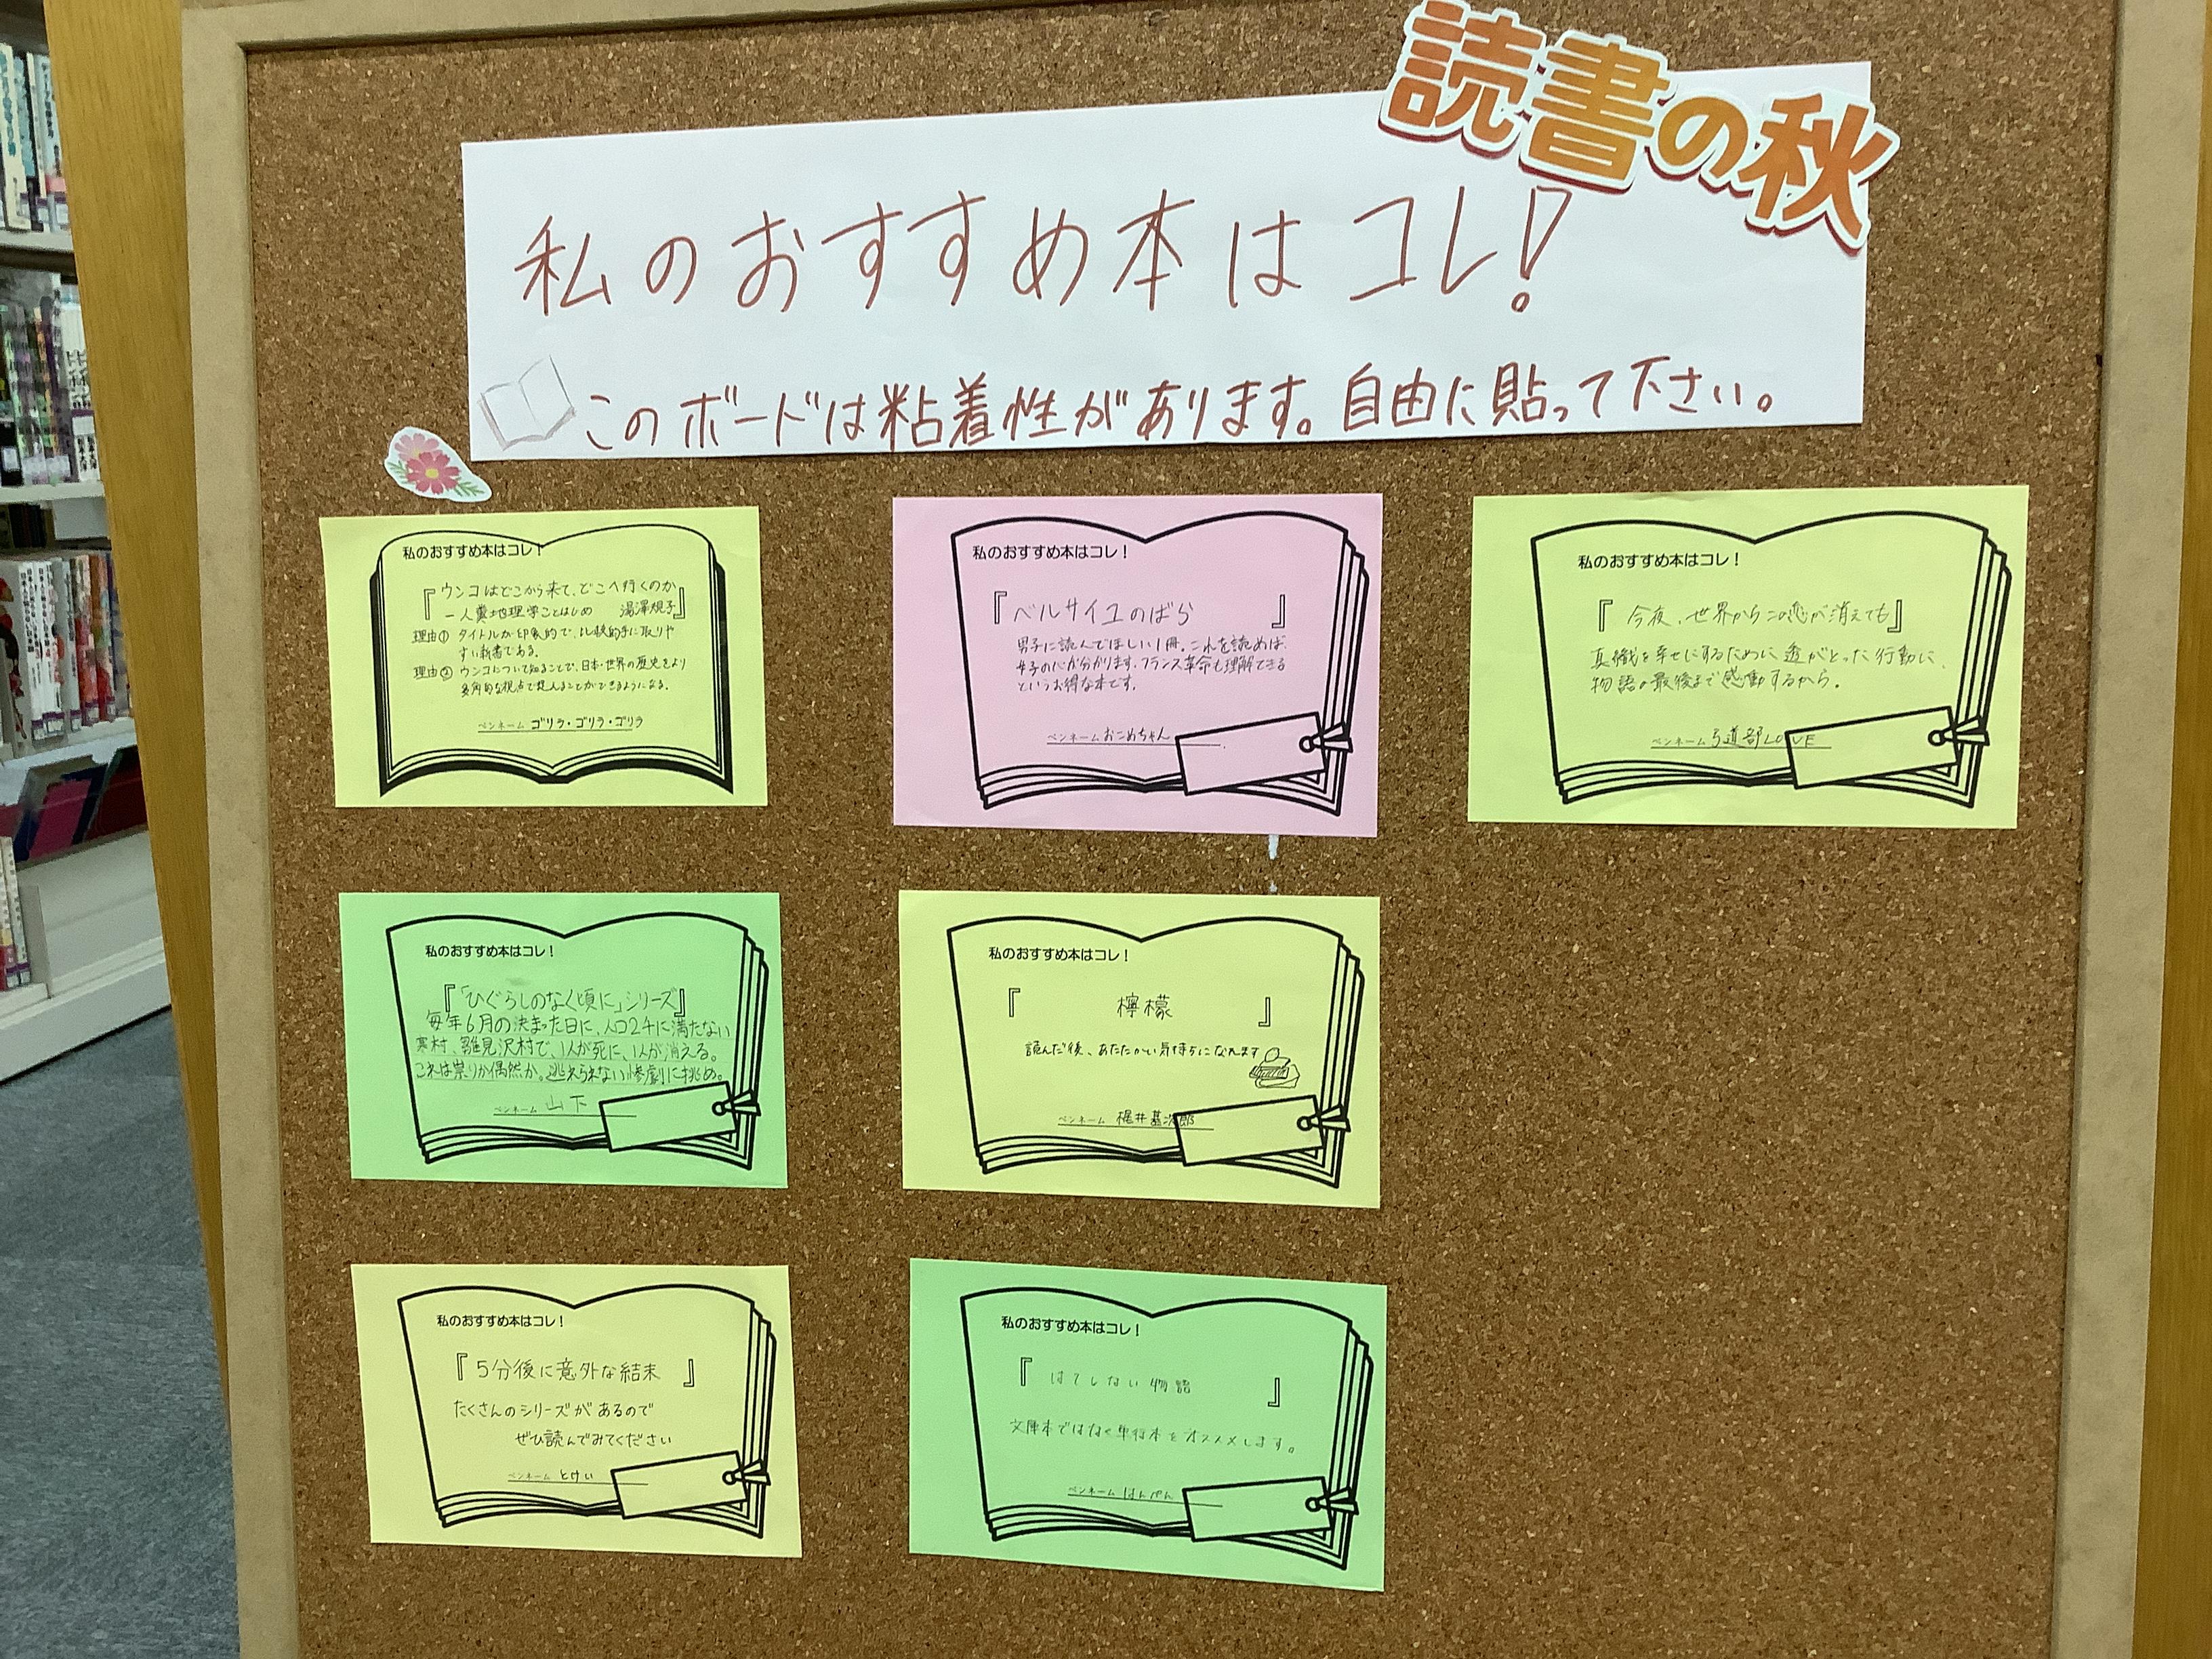 読書の秋
私のおすすめ本はコレ!
このボードは粘着性があります。自由に貼って下さい。
私のおすすめ本はコレ！
『ウンコはどこから来て、どこへ行くのか
ー人糞地理学ことはじめ 湯澤規子』
理由① タイトルが印象的で、比較的手に取りや
すい新書である。
理由② ウンコについて知ることで、日本・世界の歴史をより
多角的な視点で捉えることができるようになる。
ペンネーム ゴリラ・ゴリラ・ゴリラ
私のおすすめ本はコレ！
『ベルサイユのばら』
男子に読んでほしい1冊。これを読めば、
女子の心が分かります。フランス革命も理解できる
というお得な本です。
ペンネーム おこめちゃん
私のおすすめ本はコレ！
『今夜、世界からこの恋が消えても』
真織を幸せにするために透がとった行動に、
物語の最後まで感動するから。
ペンネーム 弓道部LOVE
私のおすすめ本はコレ！
『「ひぐらしのなく頃に」シリーズ』
毎年6月の決まった日に、人口2千に満たない
寒村、雛見沢村で、1人が死に、1人が消える。
これは祟りか偶然か。逃れられない惨劇に挑め。
ペンネーム 山下
私のおすすめ本はコレ！
『檸檬』
読んだ後、あたたかい気持ちになれます
ペンネーム 梶井基次郎
私のおすすめ本はコレ！
『5分後に意外な結末』
たくさんのシリーズがあるので
ぜひ読んでみてください
ペンネーム とけい
私のおすすめ本はコレ！
『はてしない物語』
文庫本ではなく単行本をオススメします。
ペンネーム はんぺん